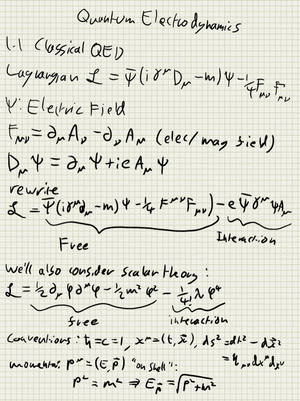 Quantum Electrodynamics
1.1 Classical QED
Lagrangian ℒ = ψ̄(iγ^μ D_μ - m)ψ - 1/4 F_μν F^μν
ψ: Electric Field
F_μν = ∂_μ A_ν - ∂_ν A_μ (elec/mag field)
D_μ ψ = ∂_μ ψ + ie A_μ ψ
rewrite
ℒ = ψ̄(iγ^μ ∂_μ - m)ψ - 1/4 F^μν F_μν) - e ψ̄ γ^μ ψ A_μ
Free Interaction
We'll also consider scalar theory:
ℒ = 1/2 ∂_μ φ ∂^μ φ - 1/2 m² φ² - 1/4! λ φ⁴
free interaction
Conventions: ħ = c = 1, x^μ = (t, x⃗), ds² = dt² - dx⃗²
= η_μν dx^μ dx^ν
momenta: p^μ = (E, p⃗) "on shell":
p² = m² ⇒ E_p⃗ = √(p⃗² + m²)